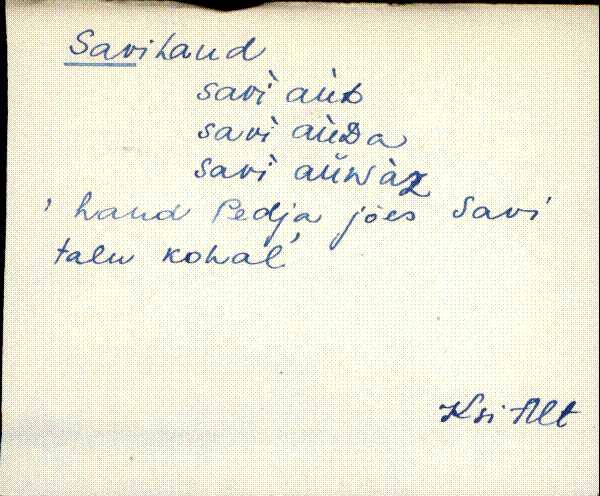 Savihaud
savì aùᴅ
savì aùᴅa
savì aŭwàz
' haud Pedja jões Savi
talu kohal'
Ksi Alt